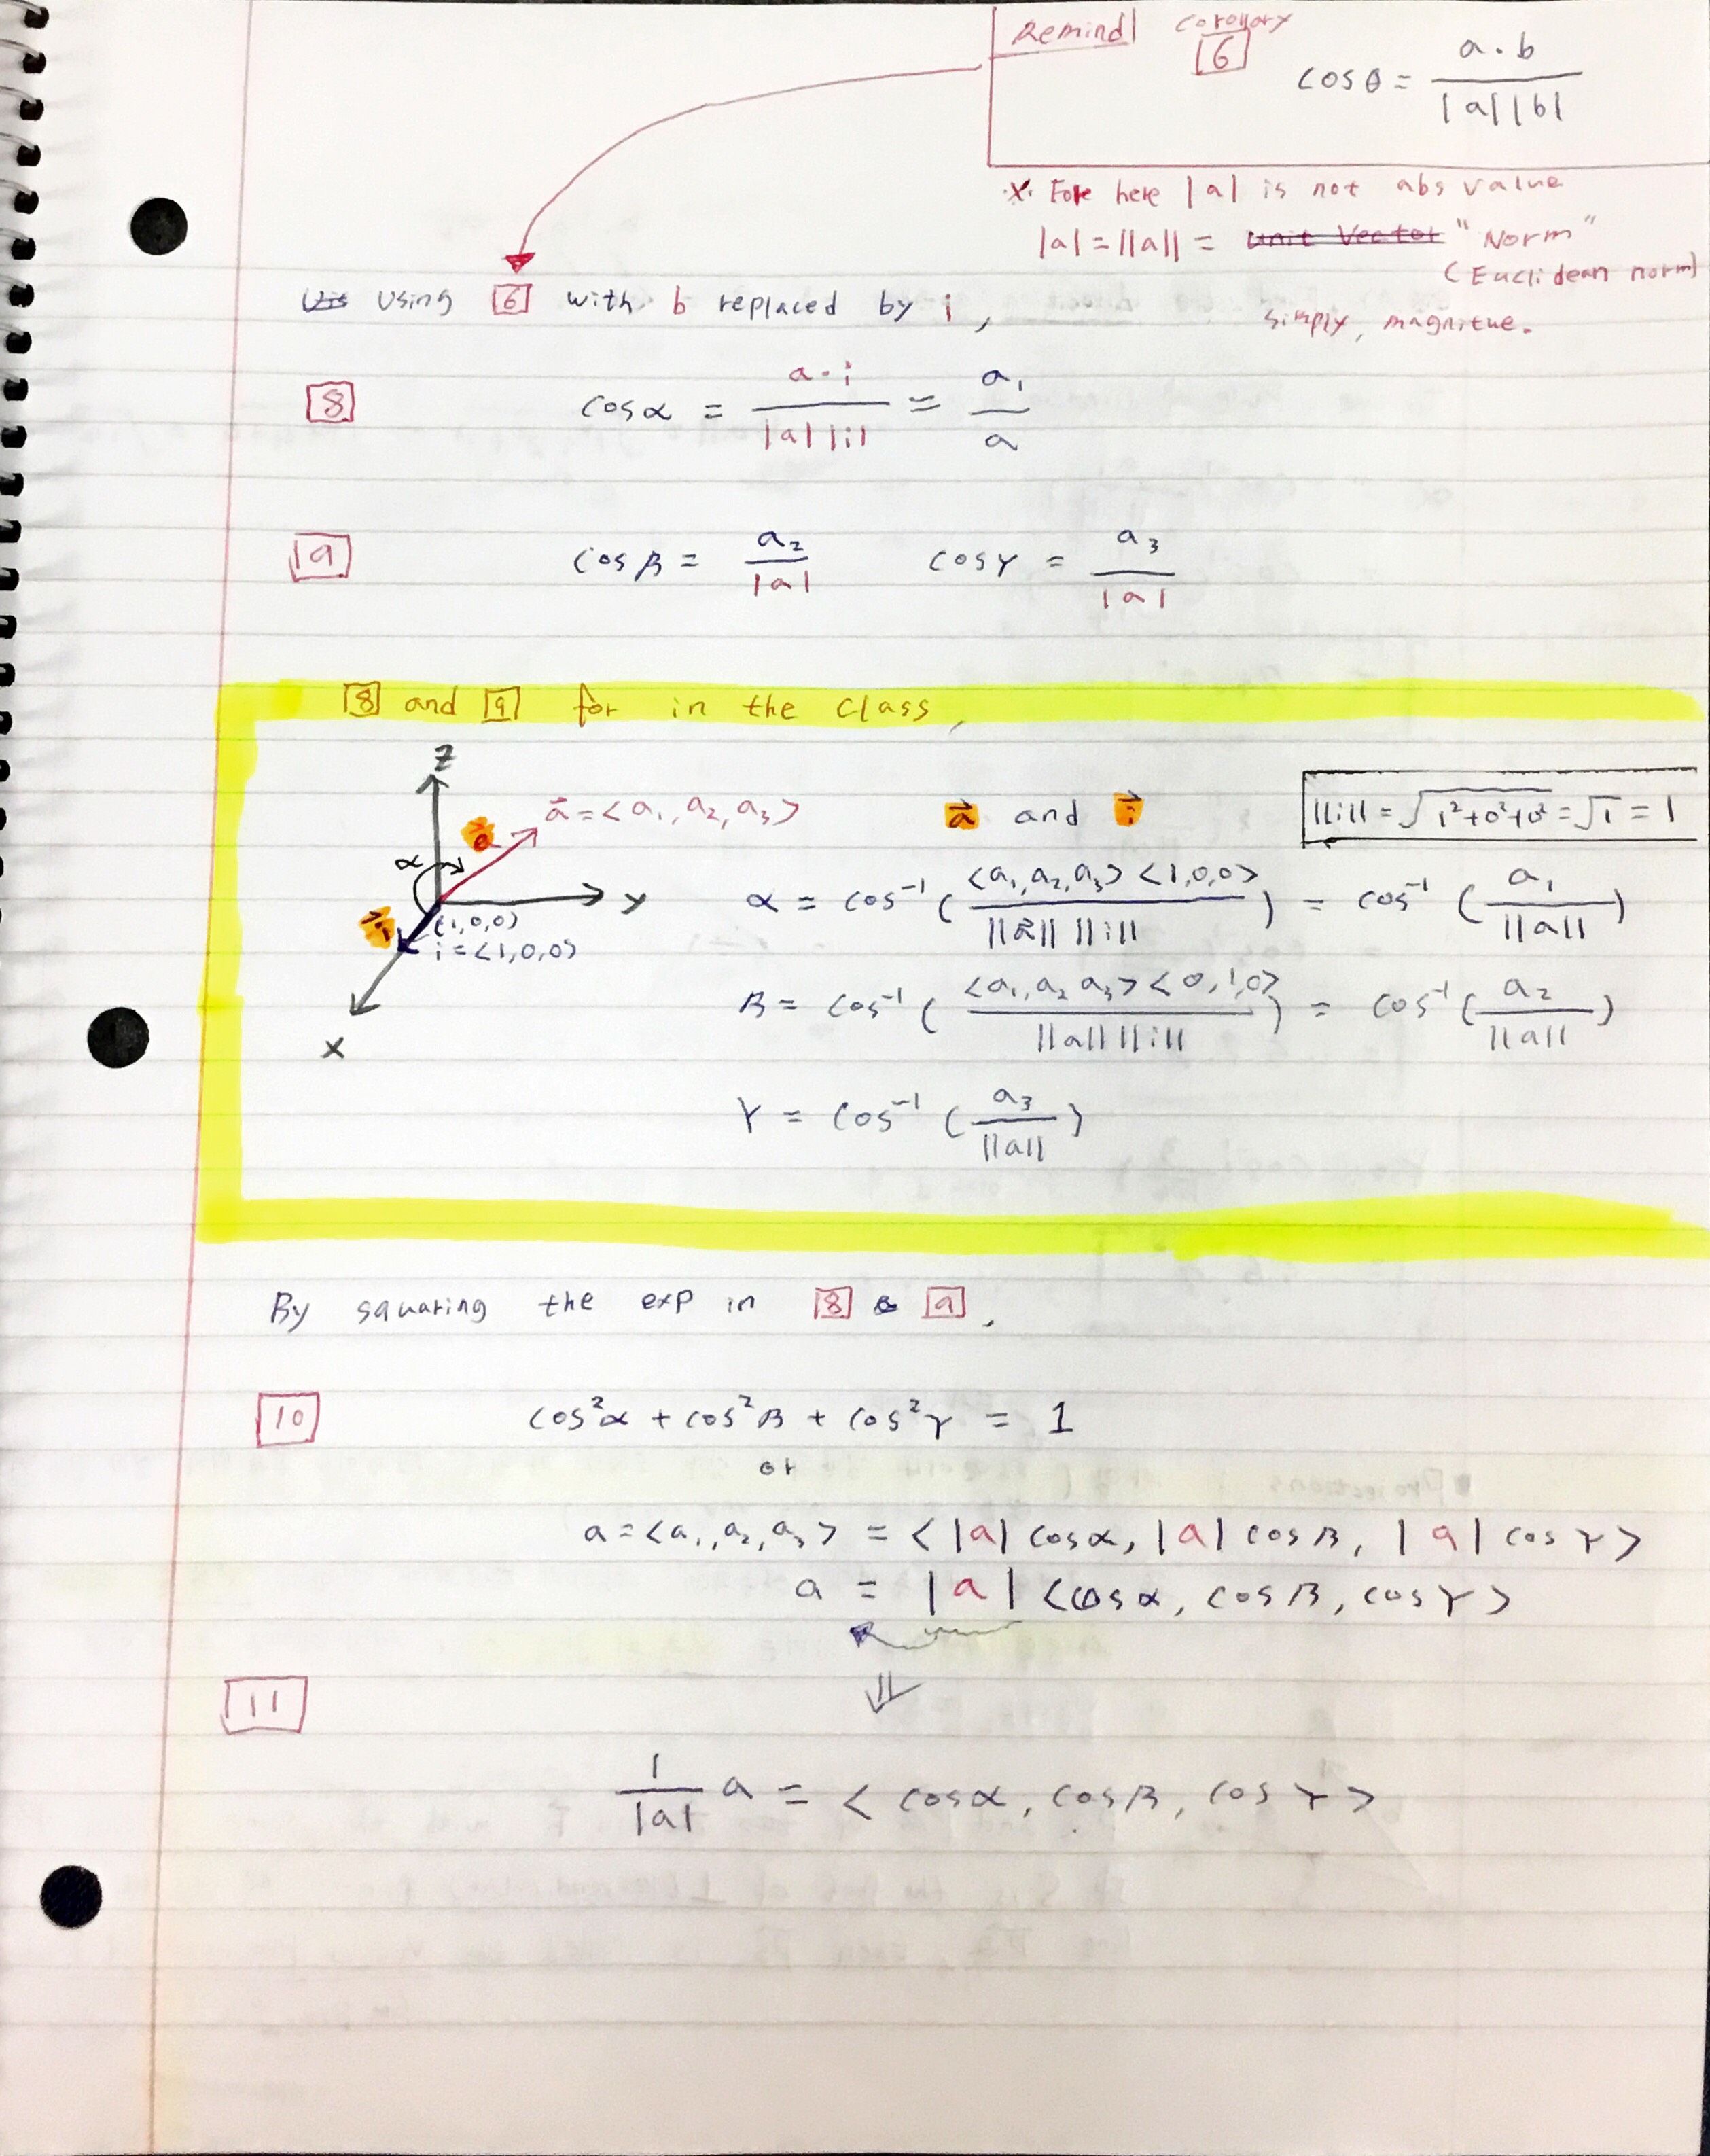 Remind Corollary
[6] cosθ = a·b / |a||b|
※ Fore here |a| is not abs value
|a| = ||a|| = Unit Vector "Norm"
(Euclidean norm)
simply, magnitue.
Using [6] with b replaced by i,
[8] cosα = a·i / |a||i| = a₁ / a
[9] cosβ = a₂ / |a| cosγ = a₃ / |a|
[8] and [9] for in the class,
z
a⃗ = <a₁, a₂, a₃>
a⃗
α
y
i⃗
(1,0,0)
i = <1,0,0>
x
a⃗ and i⃗
||i|| = √(1²+0²+0²) = √1 = 1
α = cos⁻¹( <a₁,a₂,a₃> <1,0,0> / ||a⃗|| ||i|| ) = cos⁻¹( a₁ / ||a|| )
β = cos⁻¹( <a₁,a₂ a₃> <0,1,0> / ||a|| ||i|| ) = cos⁻¹( a₂ / ||a|| )
γ = cos⁻¹( a₃ / ||a|| )
By squaring the exp in [8] & [9],
[10] cos²α + cos²β + cos²γ = 1
or
a = <a₁, a₂, a₃> = <|a| cosα, |a| cosβ, |a| cosγ>
a = |a| <cosα, cosβ, cosγ>
⇓
[11]
1 / |a| a = <cosα, cosβ, cosγ>